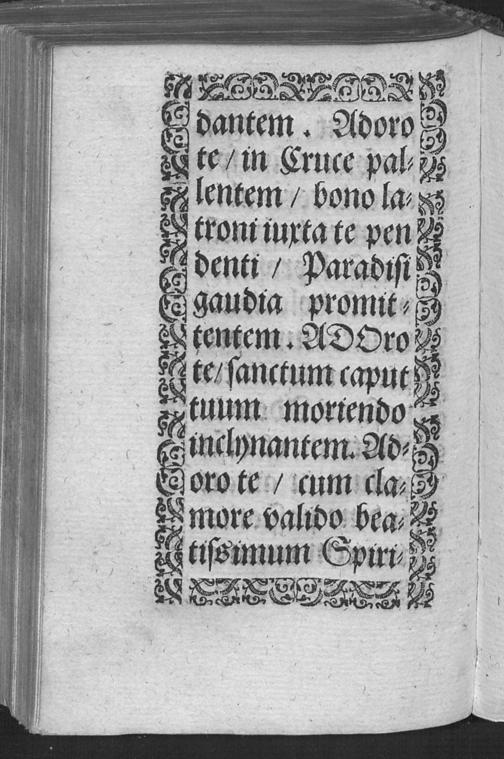 dantem . Adoro
te / in Cruce pal⸗
lentem / bono la⸗
troni iuxta te pen
denti / Paradisi
gaudia promit⸗
tentem . ADOro
te / sanctum caput
tuum moriendo
inclynantem. Ad⸗
oro te / cum cla⸗
more valido bea⸗
tissimum Spiri⸗